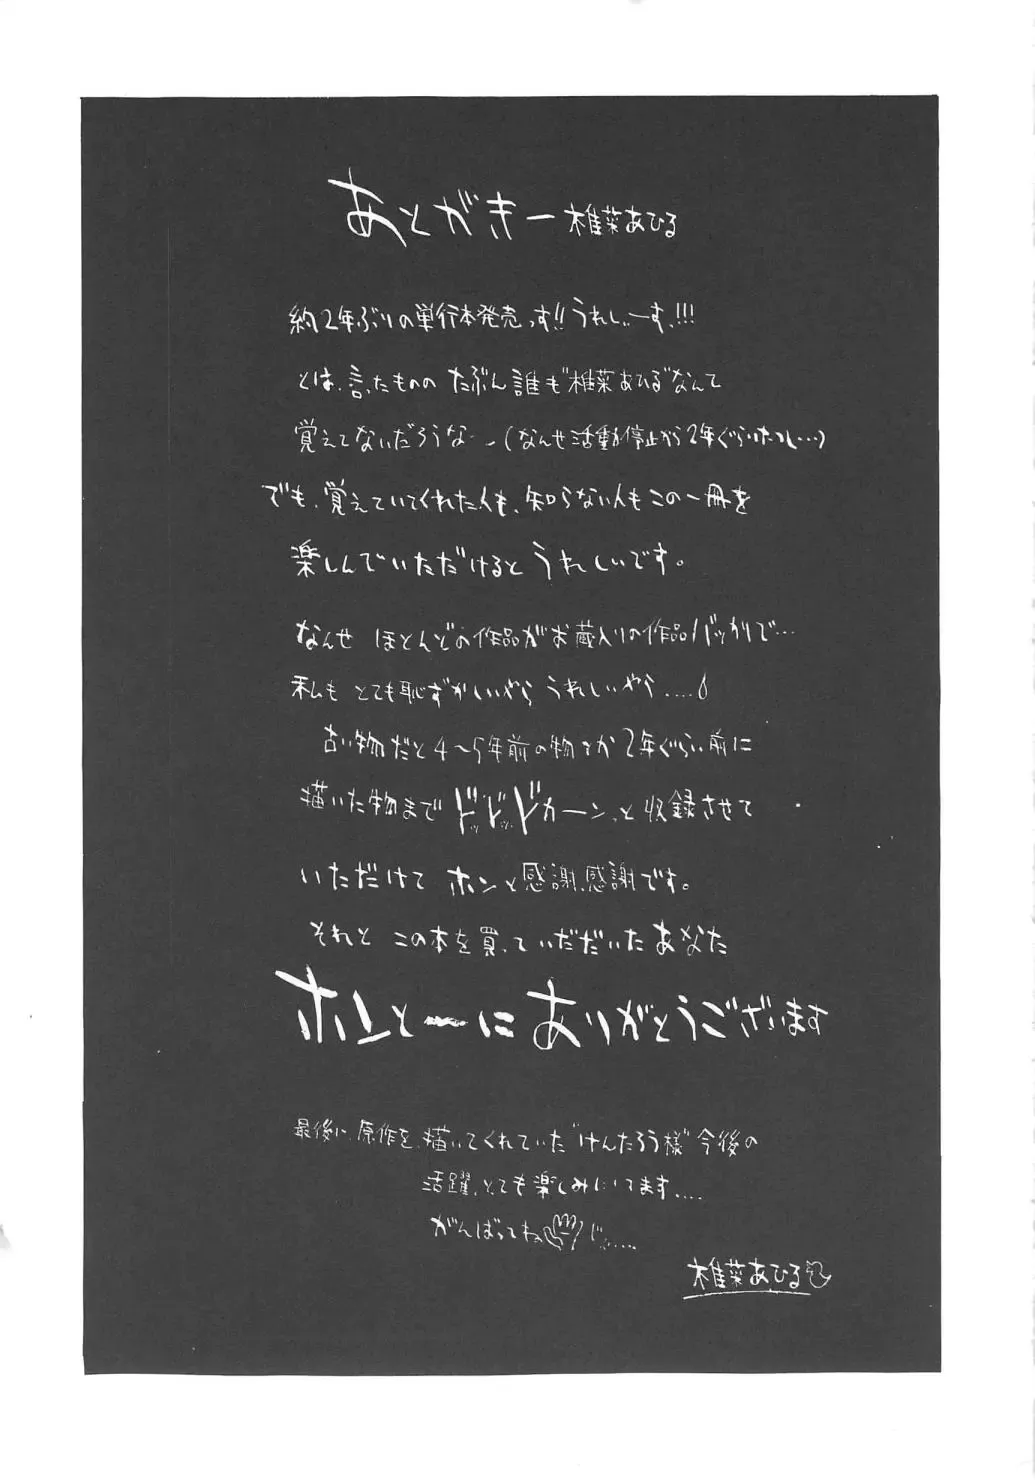 あとがきー 椎菜あひる
約2年ぶりの単行本発売っす!!うれしぃーす、!!!
とは、言ったものの たぶん誰も"椎菜あひる"なんて
覚えてないだろうなー(なんせ活動停止から2年ぐらいたつし…)
でも、覚えていてくれた人も、知らない人もこの一冊を
楽しんでいただけると うれしいです。
なんせ ほとんどの作品がお蔵入りの作品バッカリで…
私も とても恥ずかしいやら うれしいやら….
古い物だと 4〜5年前の物とか 2年ぐらい前に
描いた物まで ドッドッドカーン、と 収録させて
いただけて ホンと感謝、感謝です。
それと この本を買っていだだいた あなた
ホンとーに ありがとうございます
最後に、原作を、描いてくれていた"けんたろう様"今後の
活躍、とても楽しみにしてます….
がんばってね じゃ…..
椎菜あひる